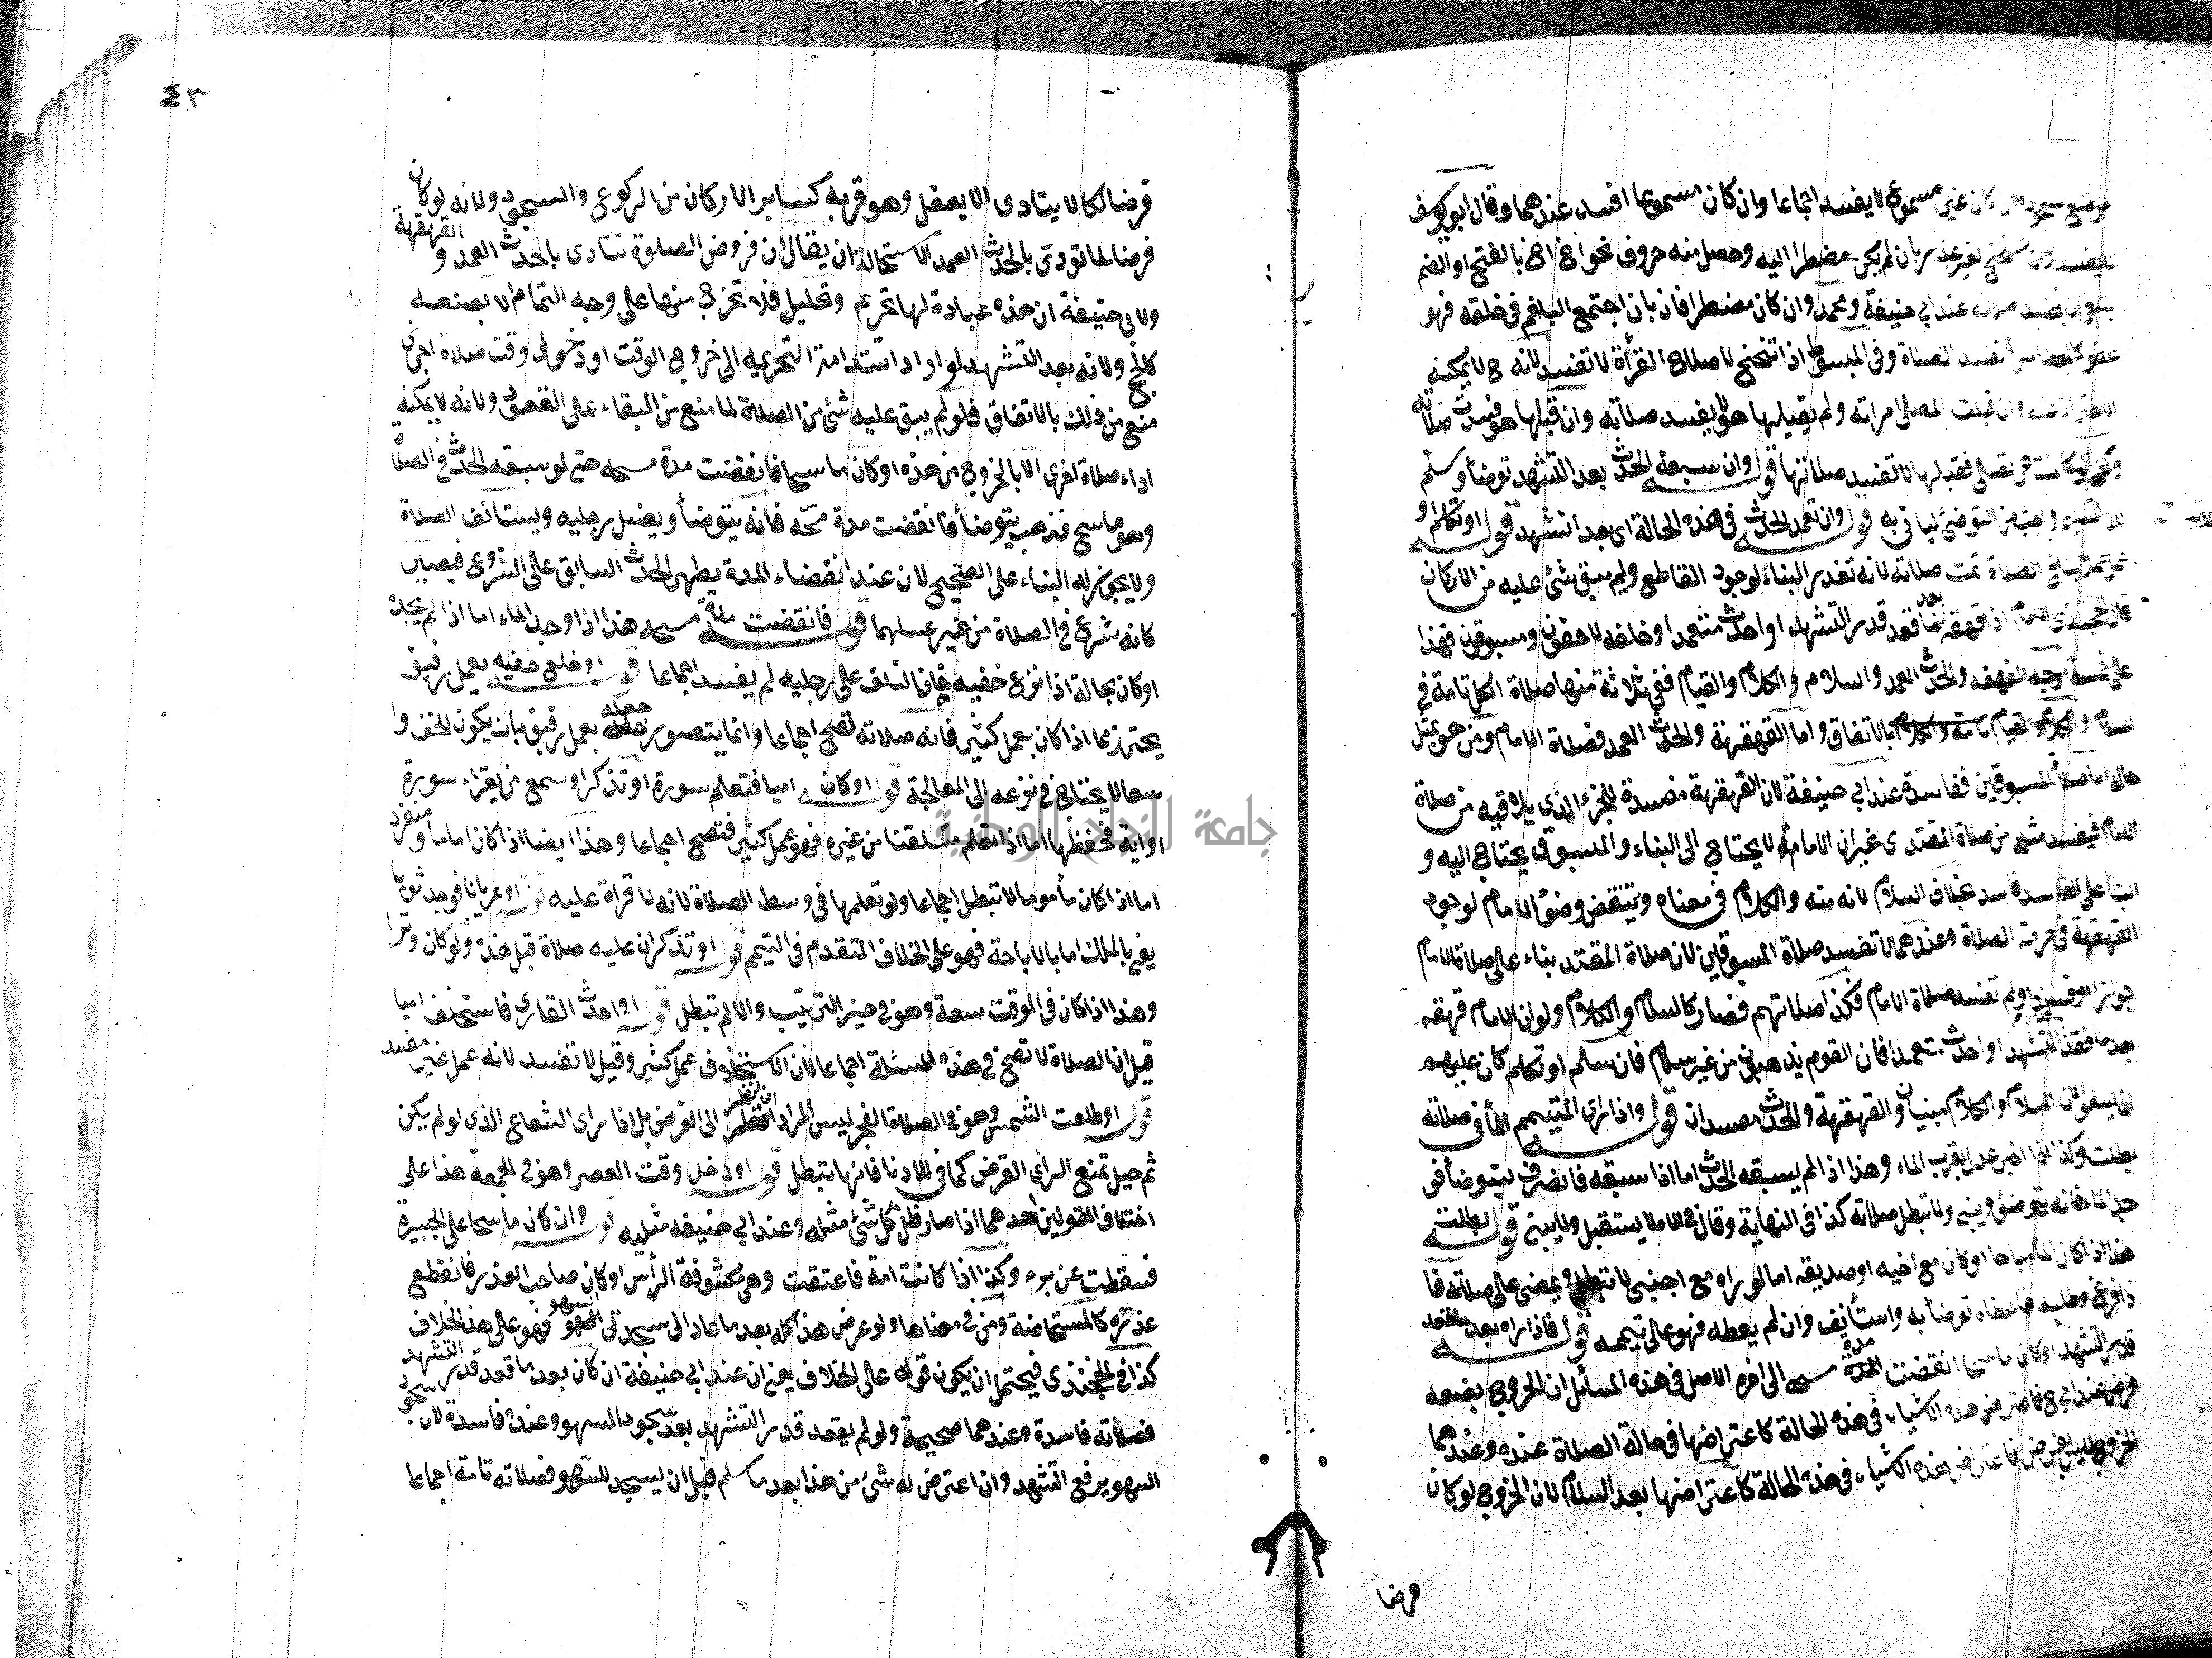 موضع سجوده ان كان غير مسموع لا يفسد اجماعا وان كان مسموعا افسد عندهما وقال ابو يوسف
لا يفسد وان تنحنح بغير عذر بان لم يكن مضطرا اليه وحصل منه حروف نحو اح اح بالفتح او الضم
تفسد صلاته عند ابي حنيفة ومحمد وان كان مضطرا فان بان اجتمع البلغم في حلقه فهو
لا تفسد الصلاة وفي المبسوط اذا تنحنح لاصلاح القرأة لا تفسد لانه ح لا يمكنه
وان قبلت المصلى امراته ولم يقبلها هو لا يفسد صلاته وان قبلها هو فسدت صلاته
وكذا لو كانت هي تصلى فقبلها لا تفسد صلاتها قوله وان سبقه الحدث بعد التشهد توضأ وسلم
التوضئ ليأتى به قوله وان تعمد الحدث في هذه الحالة اى بعد التشهد قوله او تكلم او
عمل عملا ينافي الصلاة تمت صلاته لانه تعذر البناء لوجود القاطع ولم يبق شئ عليه من الاركان
قال الخجندى الامام اذا قهقه بعد ما قعد قدر التشهد او احدث متعمدا وخلفه لاحقون ومسبوقون فهذا
على خمسة اوجه القهقهه والحدث العمد والسلام والكلام والقيام ففي ثلاثة منها صلاة الكل تامة في
السلام والكلام والقيام تامة والكلام بالاتفاق واما القهقهة والحدث العمد فصلاة الامام ومن هو بمثل
حاله اما صلاة المسبوقين ففاسدة عند ابي حنيفة لان القهقهة مفسدة للجزء الذى يلاقيه من صلاة
الامام فيفسد مثله من صلاة المقتدى غير ان الامام لا يحتاج الى البناء والمسبوق يحتاج اليه و
البنا على الفاسد فاسد بخلاف السلام لانه منه والكلام في معناه وينتقض وضوء الامام لوجود
القهقهة في حرمة الصلاة وعندهما لا تفسد صلاة المسبوقين لان صلاة المقتد بناء على صلاة الامام
جوازا وفسادا ولم تفسد صلاة الامام فكذا صلاتهم فصار كالسلام والكلام ولو ان الامام قهقه
بعد ما قعد التشهد او احدث متعمدا فان القوم يذهبون من غير سلام فان سلم او تكلم كان عليهم
ان يسلموا لان السلام والكلام مبنيان والقهقهة والحدث مفسدان قوله واذا رأى المتيمم الماء في صلاته
بطلت وكذا اذا اخبر عدل بقرب الماء وهذا اذا لم يسبقه الحدث اما اذا سبقه فانصرف ليتوضأ فو
جد الماء فانه يتوضئ ويبنى ولا تبطل صلاته كذا في النهاية وقال في الاملا يستقبل ولا يبنى قوله بطلت
هذا اذا كان الماء مباحا او كان مع اخيه او صديقه اما لو راه مع اجنبى لا تبطل ويمضى على صلاته فا
ذا فرغ وطلبه فاعطاه توضأ به واستأنف وان لم يعطه فهو على تيممه قوله فاذا راه بعد ما قعد
قدر التشهد او كان ماسحا انقضت مدة مسحه الى اخره الاصل في هذه المسائل ان الخروج بصنعه
فرض عند ابي ح فاعتراض هذه الاشياء في هذه الحالة كاعتراضها في حالة الصلاة عنده وعندهما
الخروج ليس بفرض فاعتراض هذه الاشياء في هذه الحالة كاعتراضها بعد السلام لان الخروج لو كان
فرضا
٤٣
فرضا لكان لا يتادى الا بفعل وهو قربه كسائر الاركان من الركوع والسجود ولانه لو كان
فرضا لما تؤدى بالحدث العمد لاستحالة ان يقال ان فروض الصلوة تتادى بالحدث العمد والقهقهة
ولابي حنيفة ان هذه عبادة لها تحريم وتحليل فلا تخرج منها على وجه التمام الا بصنعه
كالحج ولانه بعد التشهد لو اراد استدامة التحريمه الى خروج الوقت او دخول وقت صلاة اخرى
منع من ذلك بالاتفاق فلو لم يبق عليه شئ من الصلاة لما منع من البقاء على القعود ولانه لا يمكنه
اداء صلاة اخرى الا بالخروج من هذه او كان ماسحا فانقضت مدة مسحه حتى لو سبقه الحدث في الصلاة
وهو ماسح فذهب يتوضأ فانقضت مدة مسحه فانه يتوضأ ويغسل رجليه ويستانف الصلاة
ولا يجوز له البناء على الصحيح لان عند انقضاء المدة يظهر الحدث السابق على الشروع فيصير
كانه شرع في الصلاة من غير غسلهما قوله فانقضت مدة مسحه هذا اذا وجد الماء اما اذا لم يجد
او كان بحالة اذا نزع خفيه خاف التلف على رجليه لم يفسد اجماعا قوله او خلع خفيه بعمل رفيق
يحترز مما اذا كان بعمل كثير فانه صلاته تصح اجماعا وانما يتصور خلعه بعمل رفيق بان يكون الخف وا
سعا لا يحتاج في نزعه الى المعالجة قوله او كان اميا فتعلم سورة او تذكر او سمع من يقراء سورة
او اية فحفظها اما اذا تعلم متلقنا من غيره فهو عمل كثير فتصح اجماعا وهذا ايضا اذا كان اماما ومنفرد
اما اذا كان مأموما لا تبطل اجماعا ولو تعلمها في وسط الصلاة لانه لا قراة عليه قوله او عريانا فوجد ثوبا
يعنى بالملك اما بالاباحة فهو على الخلاف المتقدم في التيمم قوله او تذكر ان عليه صلاة قبل هذه ولو كان وترا
وهذا اذا كان في الوقت سعة وهو في حيز الترتيب والا لم تبطل قوله او احدث القارى فاستخلف اميا
قيل ان الصلاة لا تصح في هذه المسئلة اجماعا لان الاستخلاف عمل كثير وقيل لا تفسد لانه عمل غير مفسد
قوله او طلعت الشمس وهو في الصلاة الفجر ليس المراد ان ينظر الى القرض بل اذا راى الشعاع الذى لو لم يكن
ثم جبل تمنع الراى القرض كما في بلادنا فانها تبطل قوله او دخل وقت العصر وهو في الجمعة هذا على
اختلاف القولين عندهما اذا صار ظل كل شئ مثله وعند ابي حنيفه مثليه قوله وان كان ماسحا على الجبيرة
فسقطت عن برء وكذا اذا كانت امة فاعتقت وهي مكشوفة الرأس او كان صاحب العذر فانقطع
عذره كالمستحاضة ومن في معناها ولو عرض هذا كله بعد ما عاد الى سجدتى السهو فهو على هذا الخلاف
كذا في الخجندى فيحتمل ان يكون قوله على الخلاف يعنى ان عند ابي حنيفة ان كان بعد ما قعد قدر التشهد
فصلاته فاسدة وعندهما صحيحة ولو لم يقعد قدر التشهد بعد سجود السهو وعنده فاسدة لان سجود
السهو يرفع التشهد وان اعترض له شئ من هذا بعد ما سلم قبل ان يسجد للسهو فصلاته تامة اجماعا
جامعة النجاح الوطنية